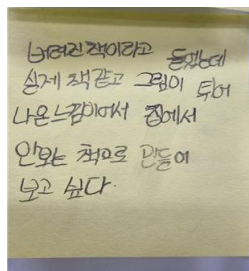 버려진 책이라고 들었는데
실제 책 같고 그림이 튀어
나온 느낌이어서 집에서
안보는 책으로 만들어
보고 싶다.